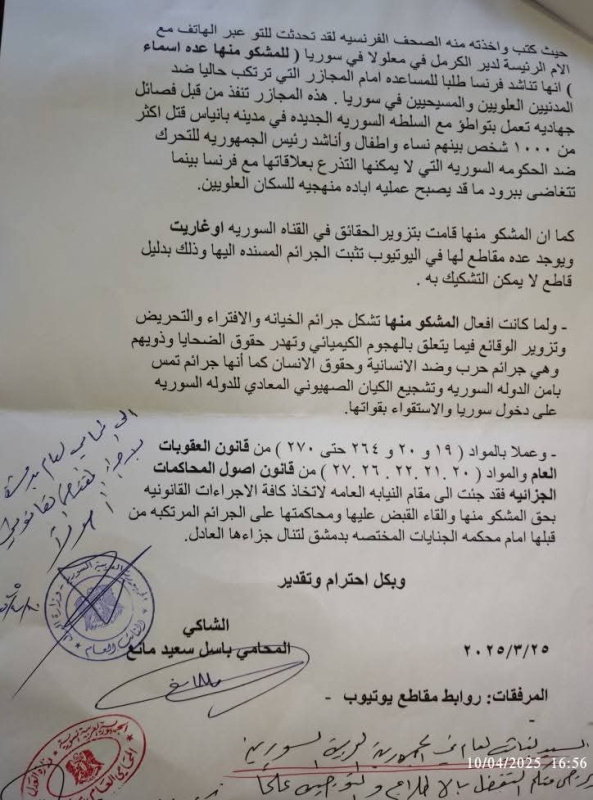 حيث كتب واخذته منه الصحف الفرنسيه لقد تحدثت للتو عبر الهاتف مع
الام الرئيسة لدير الكرمل في معلولا في سوريا ( للمشكو منها عده اسماء
) انها تناشد فرنسا طلبا للمساعده امام المجازر التي ترتكب حاليا ضد
المدنيين العلويين والمسيحيين في سوريا . هذه المجازر تنفذ من قبل فصائل
جهاديه تعمل بتواطؤ مع السلطه السوريه الجديده في مدينه بانياس قتل اكثر
من ١٠٠٠ شخص بينهم نساء واطفال وأناشد رئيس الجمهوريه للتحرك
ضد الحكومه السوريه التي لا يمكنها التذرع بعلاقاتها مع فرنسا بينما
تتغاضى ببرود ما قد يصبح عمليه اباده منهجيه للسكان العلويين.
كما ان المشكو منها قامت بتزوير الحقائق في القناه السوريه اوغاريت
ويوجد عده مقاطع لها في اليوتيوب تثبت الجرائم المسنده اليها وذلك بدليل
قاطع لا يمكن التشكيك به .
- ولما كانت افعال المشكو منها تشكل جرائم الخيانه والافتراء والتحريض
وتزوير الوقائع فيما يتعلق بالهجوم الكيميائي وتهدر حقوق الضحايا وذويهم
وهي جرائم حرب وضد الانسانية وحقوق الانسان كما أنها جرائم تمس
بامن الدوله السوريه وتشجيع الكيان الصهيوني المعادي للدوله السوريه
على دخول سوريا والاستقواء بقواتها.
- وعملا بالمواد ( ١٩ و ٢٠ و ٢٦٤ حتى ٢٧٠ ) من قانون العقوبات
العام والمواد ( ٢٠ .٢١. ٢٢ . ٢٦ .٢٧ ) من قانون اصول المحاكمات
الجزائيه فقد جئت الى مقام النيابه العامه لاتخاذ كافة الاجراءات القانونيه
بحق المشكو منها والقاء القبض عليها ومحاكمتها على الجرائم المرتكبه من
قبلها امام محكمه الجنايات المختصه بدمشق لتنال جزاءها العادل.
وبكل احترام وتقدير
الشاكي
٢٠٢٥/٣/٢٥
المحامي باسل سعيد مانع
المرفقات: روابط مقاطع يوتيوب -
10/04/2025 16:56